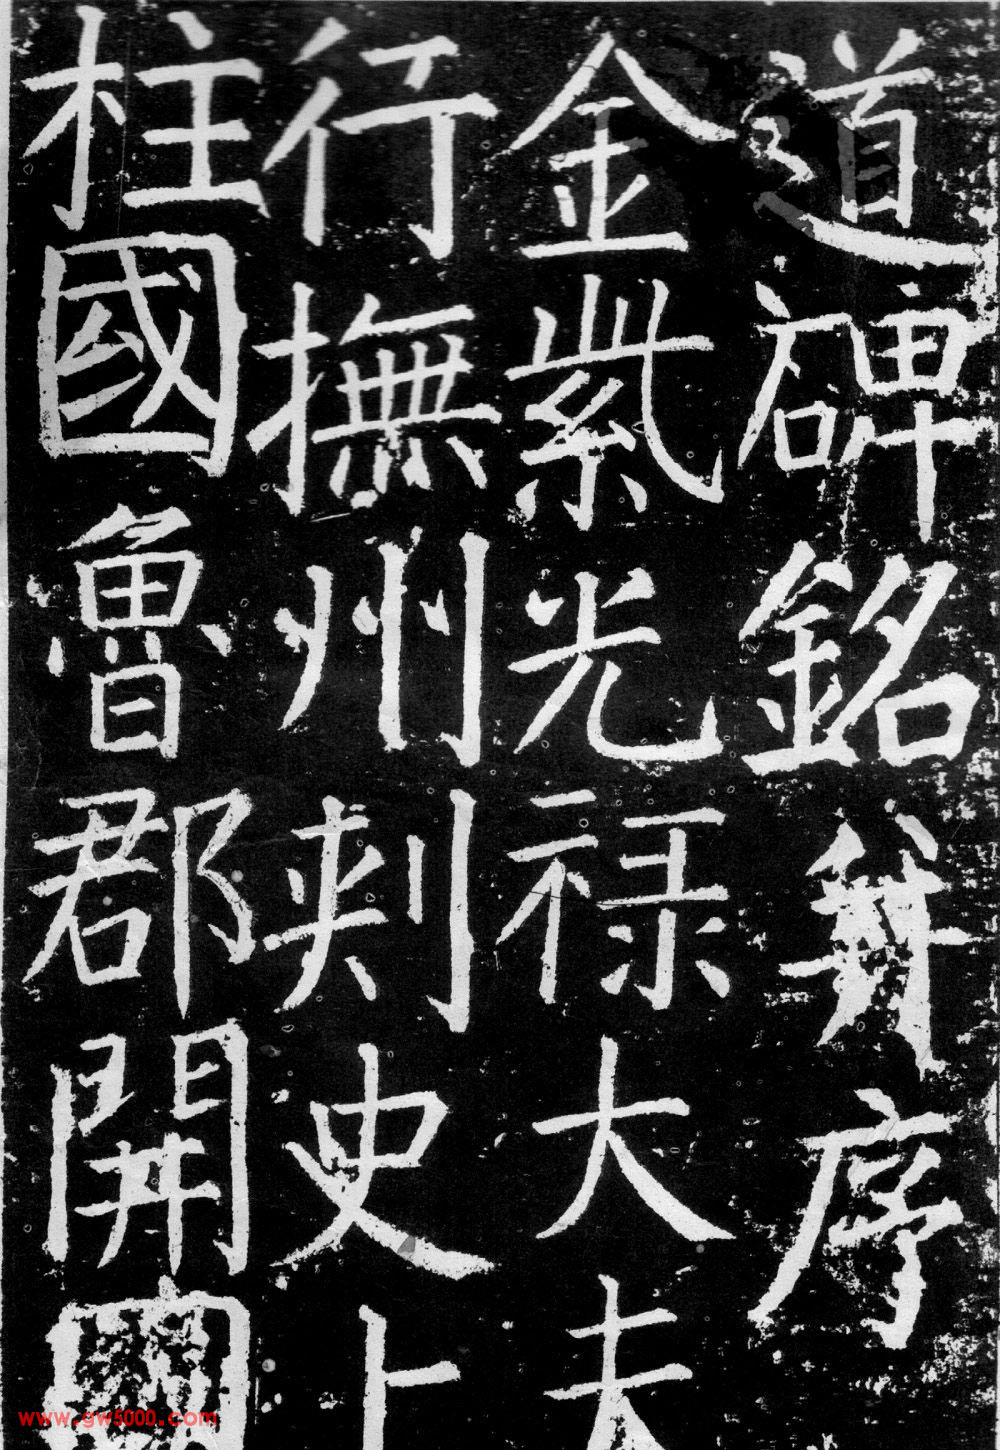 道碑銘并序
金紫光禄大夫
行撫州刺史上
柱國魯郡開國
www.gw5000.com